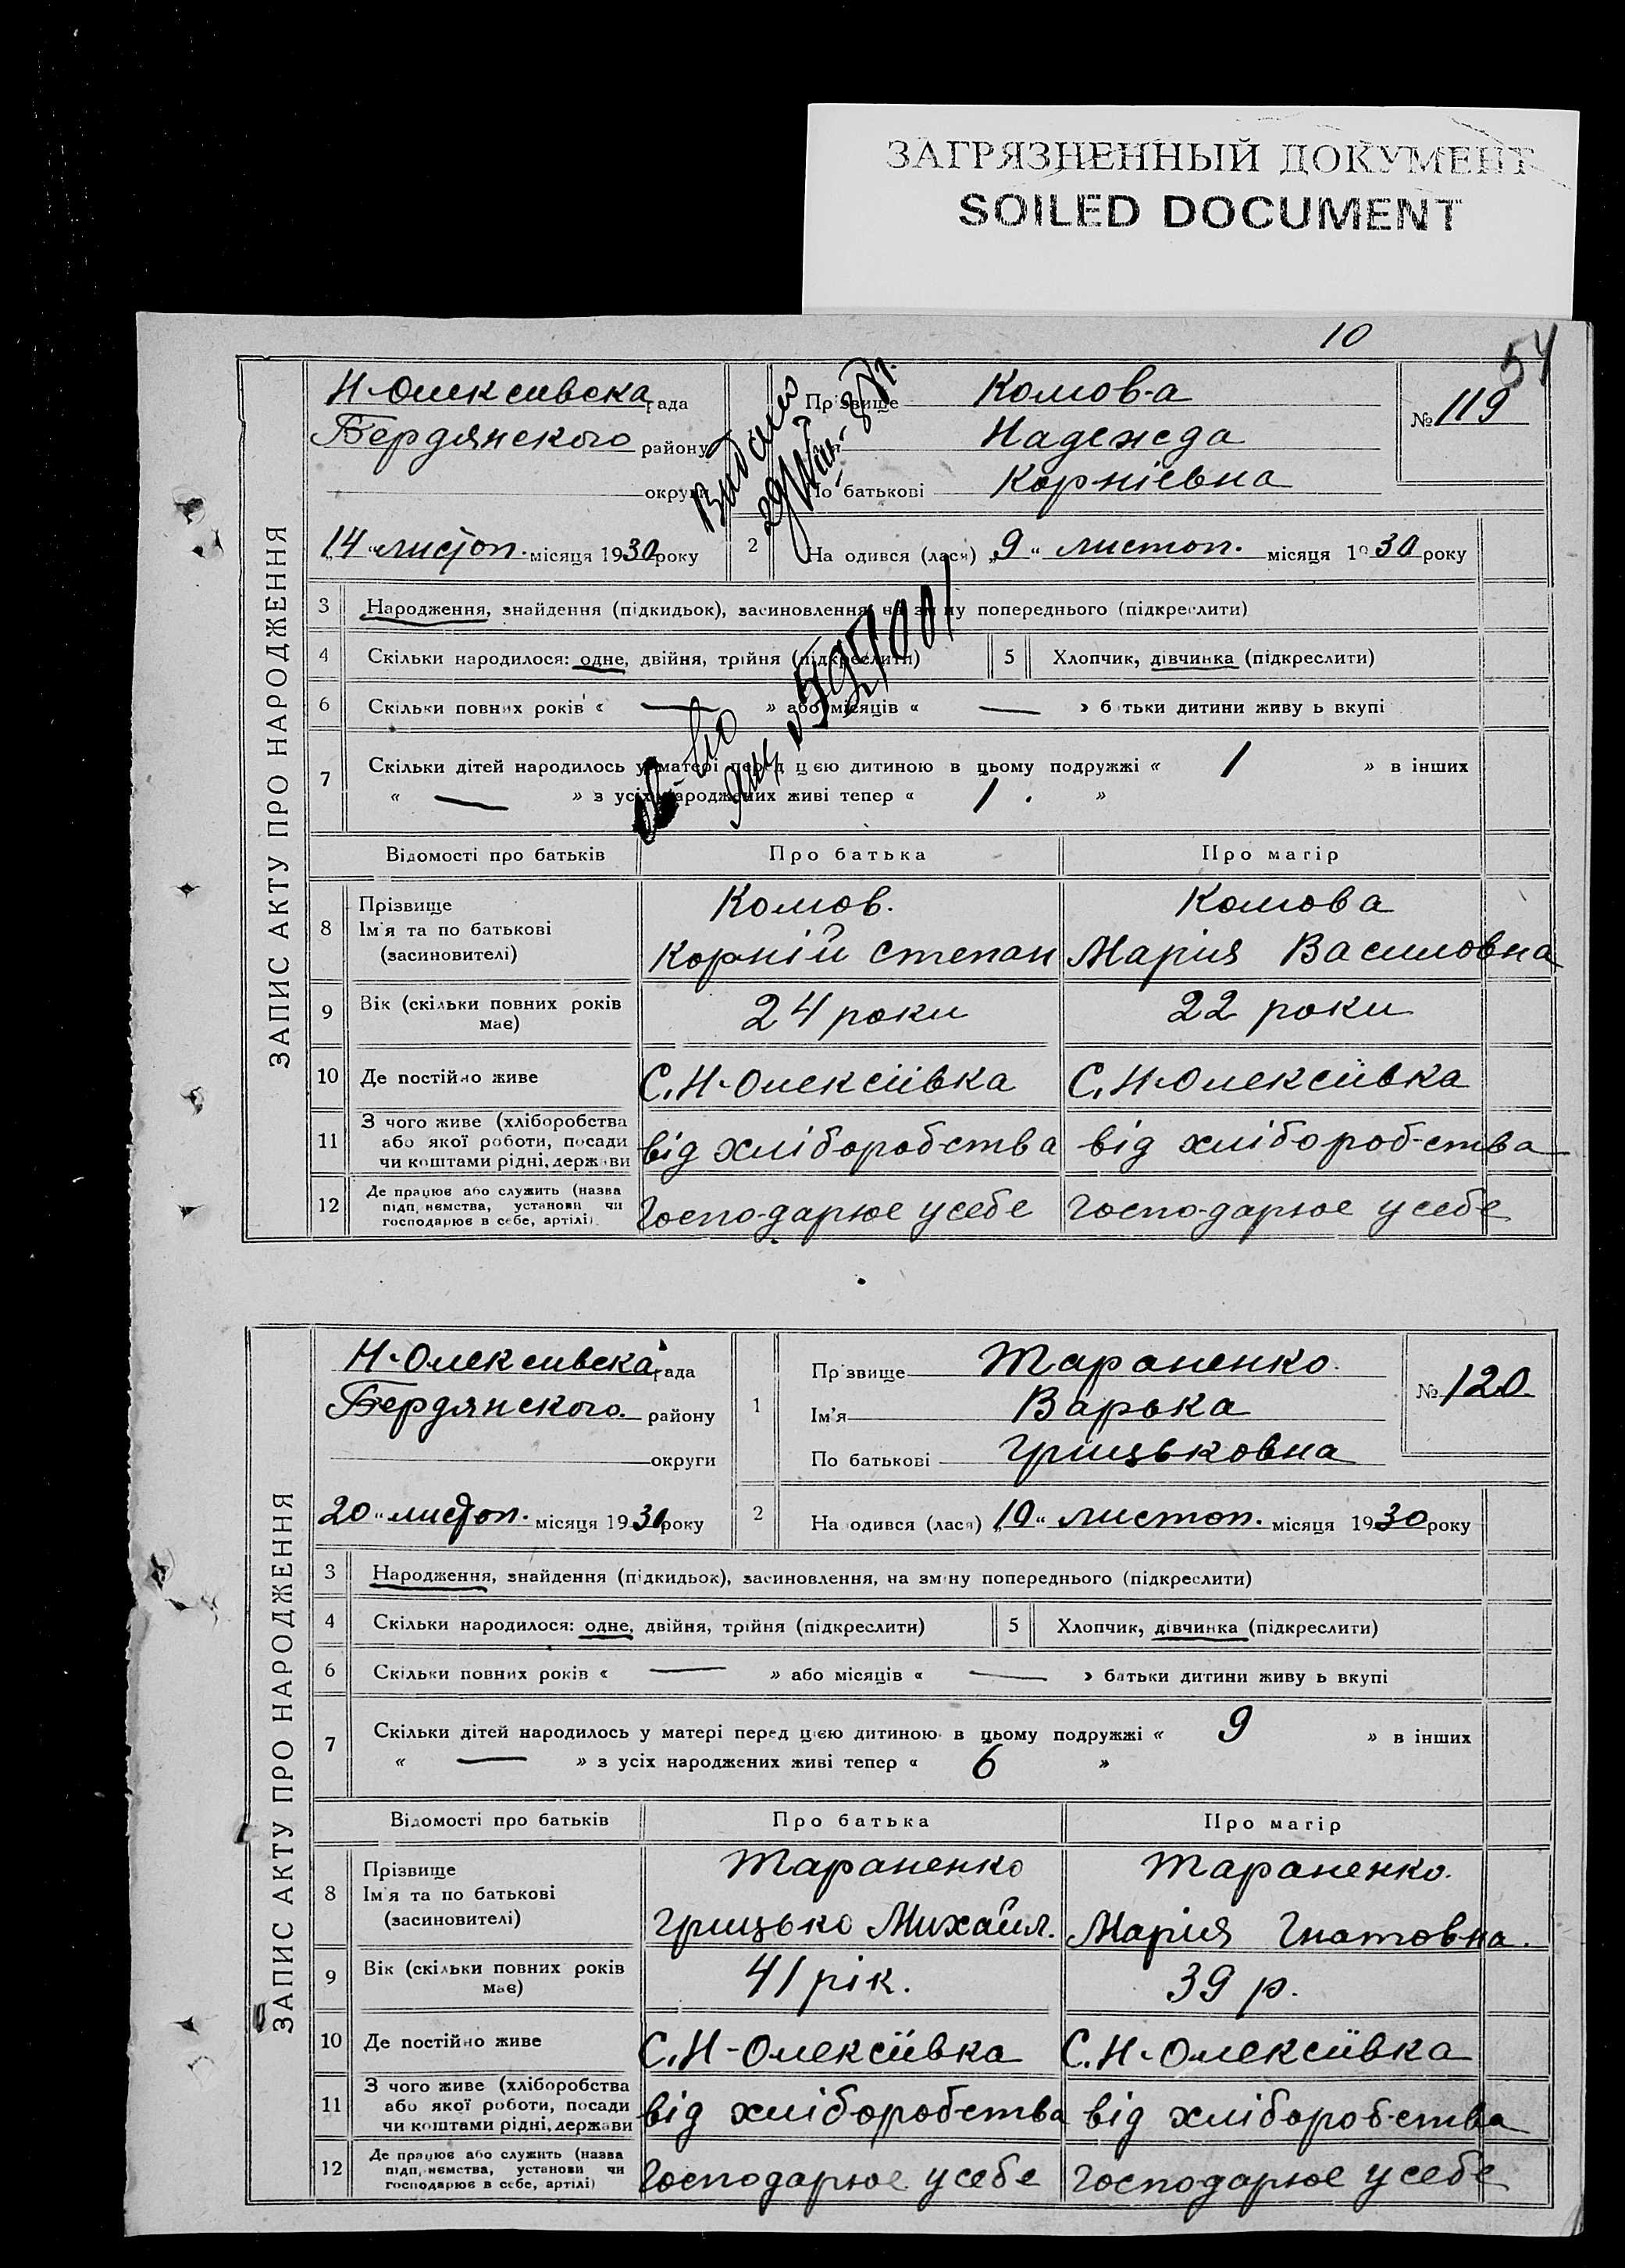 ЗАГРЯЗНЕННЫЙ ДОКУМЕНТ
SOILED DOCUMENT
10
54
ЗАПИС АКТУ ПРО НАРОДЖЕННЯ
Н-Олексиівська рада
Бердянского району
округи
Прізвище Комова
Надежда
По батькові Корніевна
№ 119
Видано
14 "листоп. місяця 1930 року
2 На одився (лася) "9" листоп. місяця 1930 року
3 Народження, знайдення (підкидьок), засиновлення, на зміну попереднього (підкреслити)
4 Скільки народилося: одне, двійня, трійня (підкреслити)
5 Хлопчик, дівчинка (підкреслити)
6 Скільки повних років « — » або місяців « — » батьки дитини живу ь вкупі
7 Скільки дітей народилось у матері перед цією дитиною в цьому подружжі « 1 » в інших
« — » з усіх народжених живі тепер « 1. »
Відомості про батьків Про батька Про матір
8 Прізвище
Ім'я та по батькові
(засиновителі)
Комов.
Корній Степан
Комова
Мария Василовна
9 Вік (скільки повних років має) 24 роки 22 роки
10 Де постійно живе С. Н-Олексіівка С. Н-Олексіівка
11 З чого живе (хліборобства
або якої роботи, посади
чи коштами рідні, держави
від хліборобства від хліборобства
12 Де працює або служить (назва
підприємства, установи чи
господарює в себе, артілі)
Господарює у себе Господарює у себе
ЗАПИС АКТУ ПРО НАРОДЖЕННЯ
Н-Олексиівська рада
Бердянского. району
округи
1 Прізвище Тараненко.
Ім'я Варька
По батькові Грицьковна
№ 120
20 "листоп. місяця 1930 року
2 На одився (лася) "19" листоп. місяця 1930 року
3 Народження, знайдення (підкидьок), засиновлення, на зміну попереднього (підкреслити)
4 Скільки народилося: одне, двійня, трійня (підкреслити)
5 Хлопчик, дівчинка (підкреслити)
6 Скільки повних років « — » або місяців « — » батьки дитини живу ь вкупі
7 Скільки дітей народилось у матері перед цією дитиною в цьому подружжі « 9 » в інших
« — » з усіх народжених живі тепер « 6 »
Відомості про батьків Про батька Про матір
8 Прізвище
Ім'я та по батькові
(засиновителі)
Тараненко
Грицько Михайл.
Тараненко.
Мария Гнатовна.
9 Вік (скільки повних років має) 41 рік. 39 р.
10 Де постійно живе С. Н-Олексіівка С. Н-Олексіівка
11 З чого живе (хліборобства
або якої роботи, посади
чи коштами рідні, держави
від хліборобства від хліборобства
12 Де працює або служить (назва
підприємства, установи чи
господарює в себе, артілі)
Господарює у себе Господарює у себе